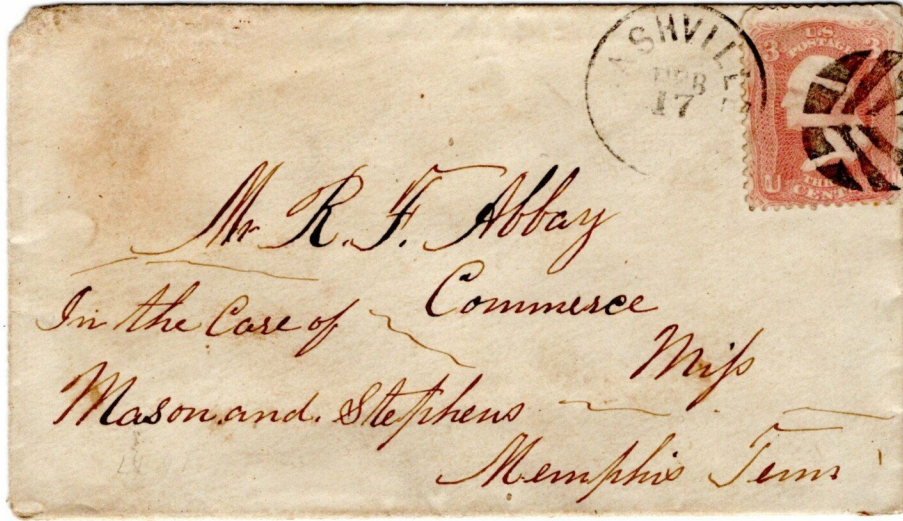 NASHVILLE
FEB
17
3 U.S. POSTAGE 3
U
THREE
CENTS
Mr R. F. Abbay
Commerce
In the Care of
Miſs
Mason and. Stephens
Memphis Tenn